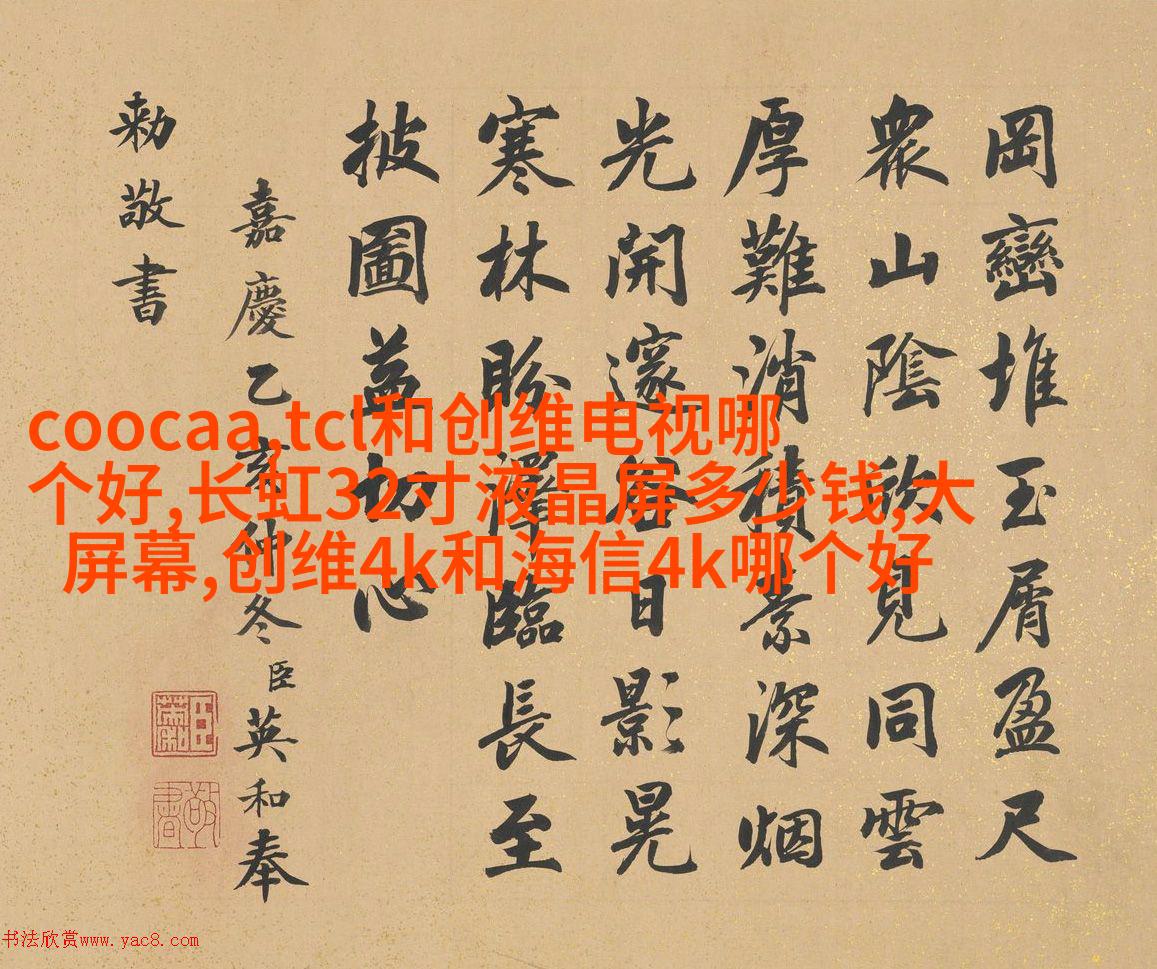 岡巒堆玉屑盈尺
衆山陰欣見同雲
厚難消積素深烟
光開邃谷日影晃
寒林盼澤臨長至
披圖益切心
嘉慶乙亥仲冬臣英和奉
勅敬書
敬書
coocaa,tcl和创维电视哪
个好,长虹32寸液晶屏多少钱,大
屏幕,创维4k和海信4k哪个好
书法欣赏www.yac8.com